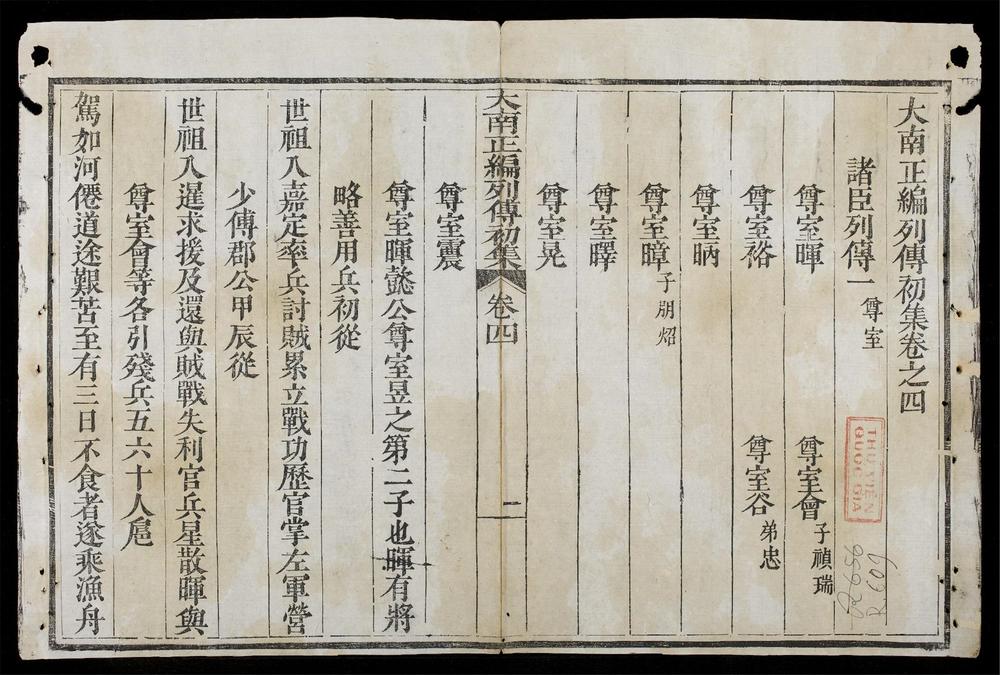 大南正編列傳初集卷之四
諸臣列傳一 尊室
尊室暉 尊室會 子禎瑞
尊室裕 尊室谷 弟忠
尊室昞
尊室暲 子朋炤
尊室曎
尊室晃
大南正編列傳初集 卷四 一
尊室震
尊室暉懿公尊室昱之第二子也暉有將
略善用兵初從
世祖入嘉定率兵討賊累立戰功歷官掌左軍營
少傅郡公甲辰從
世祖入暹求援及還與賊戰失利官兵星散暉與
尊室會等各引殘兵五六十人扈
駕如河僊道途艱苦至有三日不食者遂乘漁舟
THƯ VIỆN
QUỐC GIA
R 609